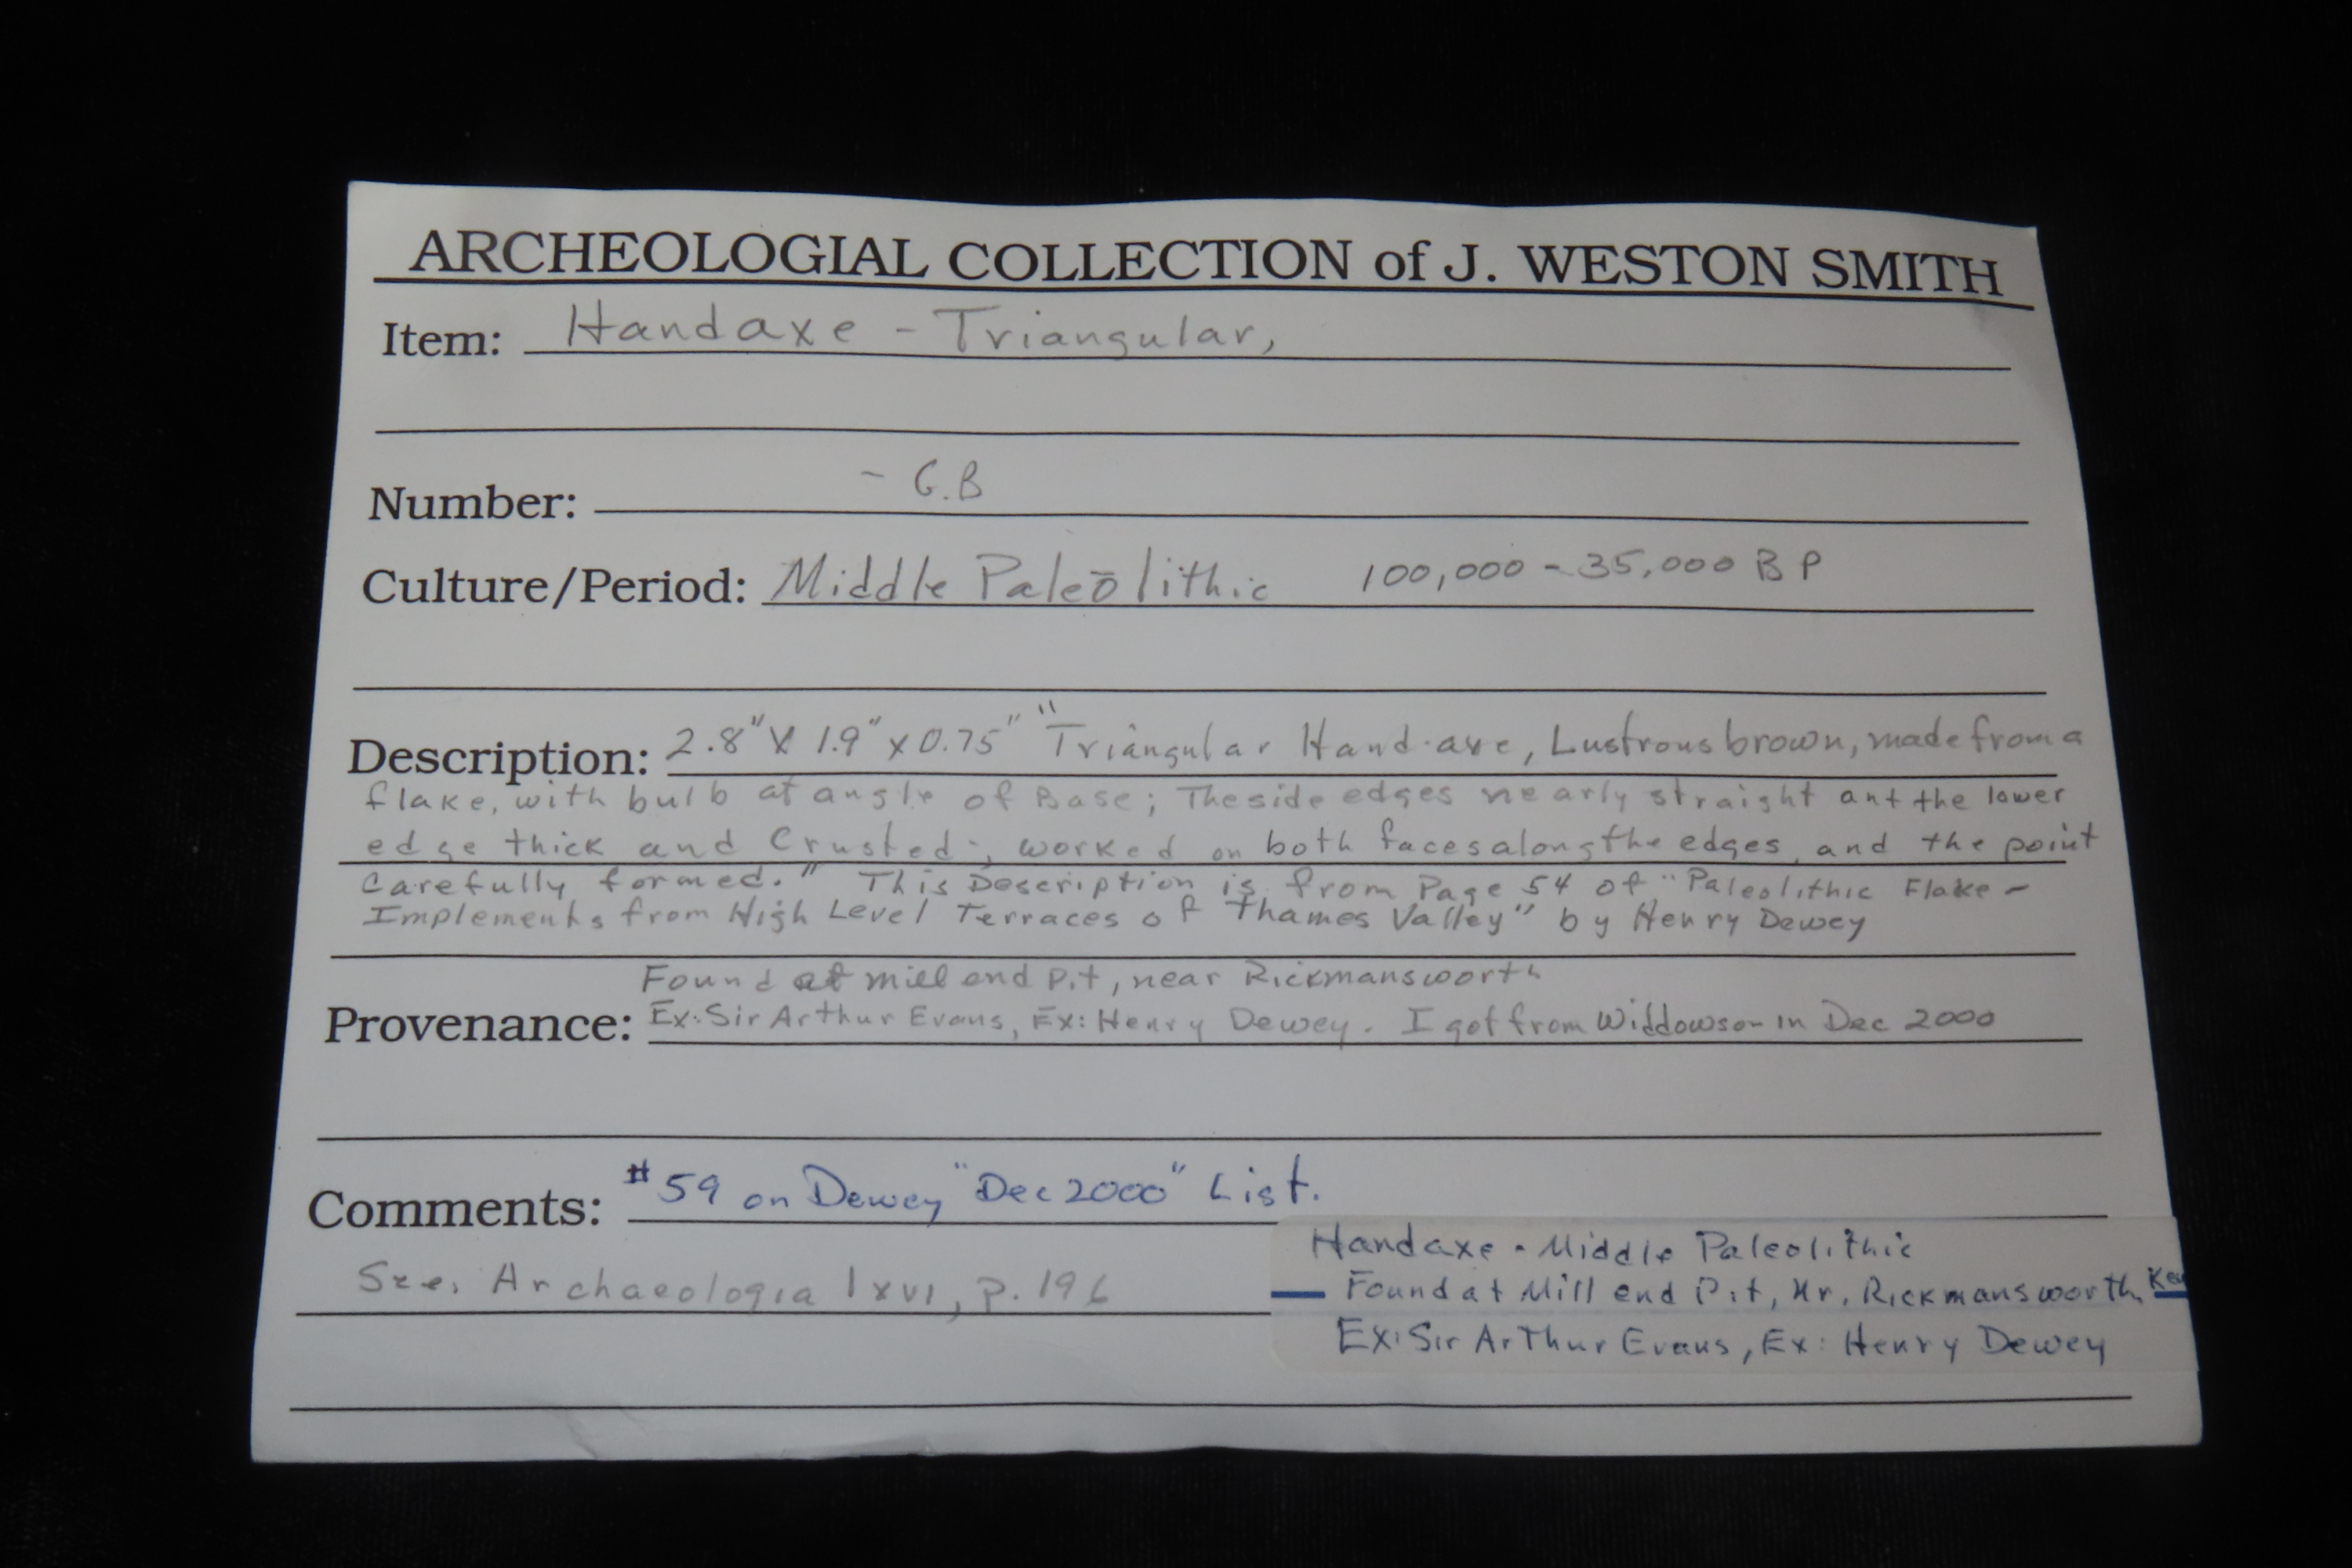 ARCHEOLOGIAL COLLECTION of J. WESTON SMITH
Item: Handaxe - Triangular,
Number: - G.B
Culture/Period: Middle Paleolithic 100,000 - 35,000 BP
Description: 2.8" X 1.9" x 0.75" "Triangular Hand-axe, Lustrous brown, made from a
flake, with bulb at angle of Base; The side edges nearly straight ant the lower
edge thick and Crusted; worked on both faces along the edges, and the point
Carefully formed." This Description is from Page 54 of "Paleolithic Flake-
Implements from High Level Terraces of Thames Valley" by Henry Dewey
Found at mill end Pit, near Rickmansworth
Provenance: Ex: Sir Arthur Evans, Ex: Henry Dewey. I got from Widdowson in Dec 2000
Comments: #59 on Dewey "Dec 2000" List.
See, Archaeologia lxvi, p. 196
Handaxe - Middle Paleolithic
Found at Mill end Pit, Nr. Rickmansworth,
Ex: Sir Arthur Evans, Ex: Henry Dewey